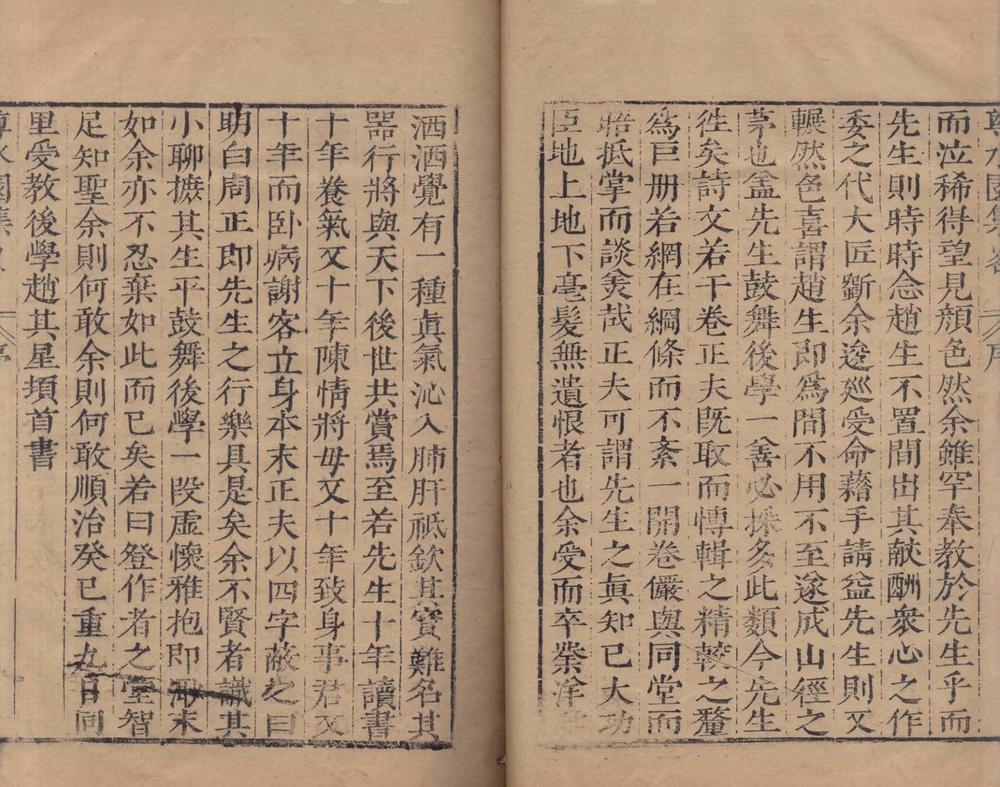 而泣稀得望見顏色然余雖罕奉教於先生乎而
先生則時時念趙生不置間出其献酬衆心之作
委之代大匠斲余逡廵受命藉手請益先生則又
囅然色喜謂趙生即爲間不用不至遂成山徑之
茅也盖先生鼓舞後學一善必採多此類今先生
徃矣詩文若干卷正夫既取而慱輯之精讐之釐
爲巨册若網在綱條而不紊一開卷儼與同堂而
晤抵掌而談矣哉正夫可謂先生之眞知已大功
臣地上地下毫髮無遺恨者也余受而卒業洋
洒洒覺有一種眞氣沁入肺肝祗欽其寳難名其
器行將與天下後世共賞焉至若先生十年讀書
十年養氣又十年陳情將毋又十年致身事君又
十年而卧病謝客立身本末正夫以四字蔽之曰
明白周正即先生之行樂具是矣余不賢者識其
小聊摭其生平鼓舞後學一叚虚懷雅抱即微末
如余亦不忍棄如此而已矣若曰登作者之堂智
足知聖余則何敢余則何敢順治癸巳重九日同
里受教後學趙其星頊首書